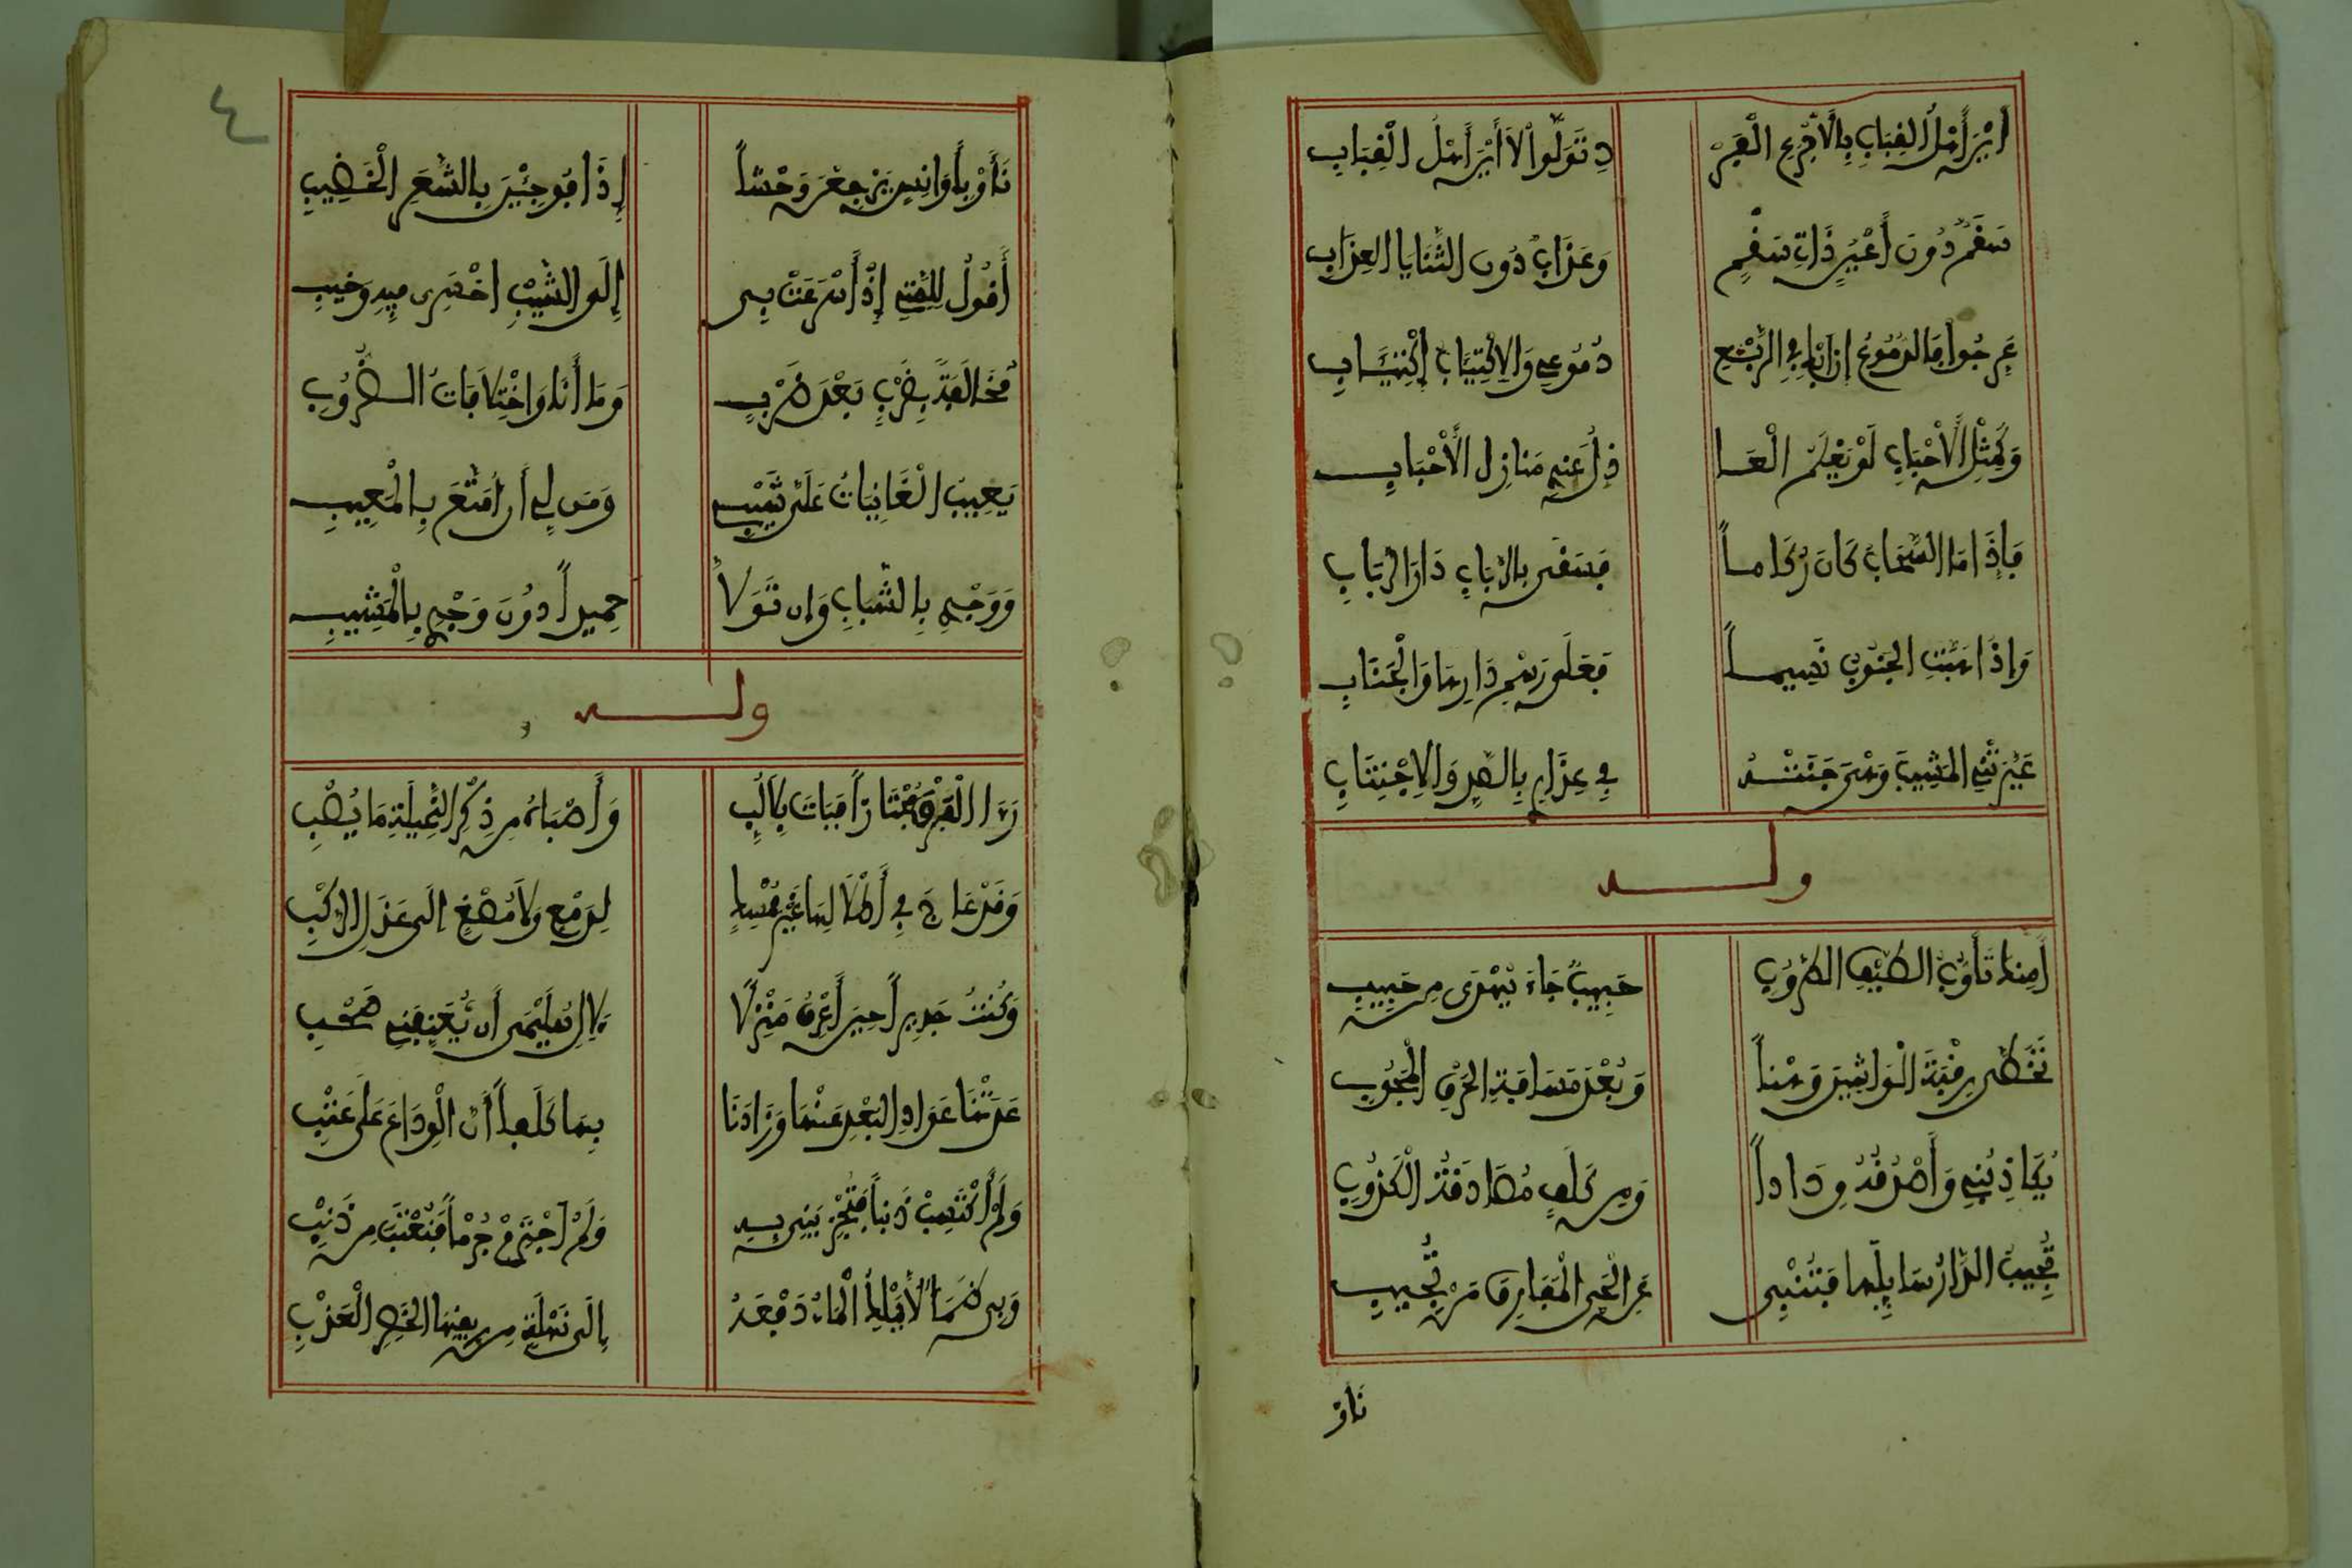 أين أهل القباب بالأجرع الفر
د تولوا لا أين أهل القباب
سقم دون أعين ذات سقم
وعذاب دون الثنايا العذاب
عرجوا فالدموع إن أبك في الربع
دموعي والاكتئاب اكتئاب
وكمثل الأحباب لو يعلم العا
ذل عندي منازل الأحباب
فإذا ما السحاب كان ركاما
فسقى بالرباب دار الرباب
وإذا هبت الجنوب نسيما
فعلى رسم دارها والجناب
عيرتني المشيب وهي جنته
في عذاري بالصد والاجتناب
وله
أمنك تأوب الطيف الطروب
حبيب جاء يهدى من حبيب
تخطى رقبة الواشين وهنا
وبعد مسافة الخرق المجوب
يكاذبني وأصدقه ودادا
ومن كلف مصادقة الكذوب
تجيب الدار سائلها فتنبي
عن الحي المفارق من تجيب
ناو
٤
نأوا بأوانس يرجعن وحشا
إذا فوجئن بالشعر الخضيب
أقول للمتي إذ أسرعت بي
إلى الشيب اخسري فيه وخيبي
مخالفة بضرب بعد ضرب
وما أنا واختلافات الضروب
يعيب الغانيات علي شيبي
ومن لي أن أمتع بالمعيب
ووجدي بالشباب وإن تولا
حميدا دون وجدي بالمشيب
وله
رءا البرق مجتازا فبات بلا لب
وأصباه من ذكر البخيلة ما يصب
وقد عاج في أطلالها غير ممسك
لدمع ولا مصغ إلى عذل الركب
وكنت جديرا حين أعرف منزلا
لال سليمى أن يعنفني صحب
عدتنا عوادي البعد عنها وزادنا
بها كلفا أن الوداع على عتب
ولم أكتسب ذنبا فتجزيني به
ولم أجترم جرما فتعتب من ذنب
وبي ظمأ لا يملك الماء دفعه
إلى نهلة من ريقها الخصر العذب